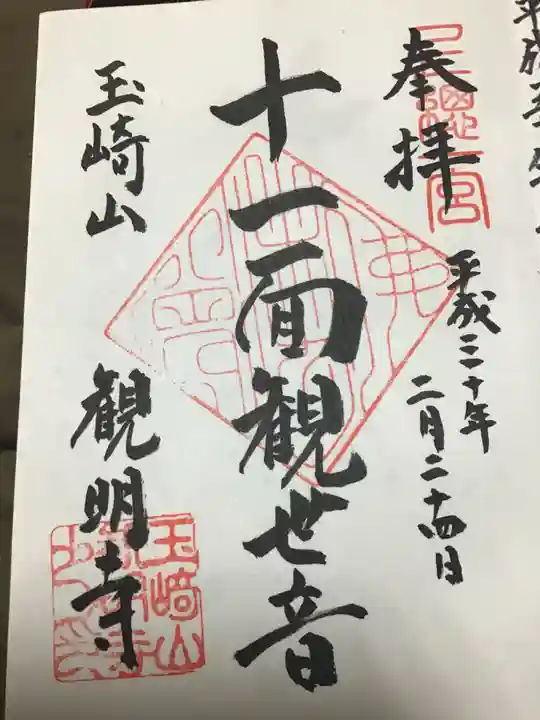 奉拝
平成三十年
二月二十四日
十一面観世音
玉崎山
観明寺
玉崎山